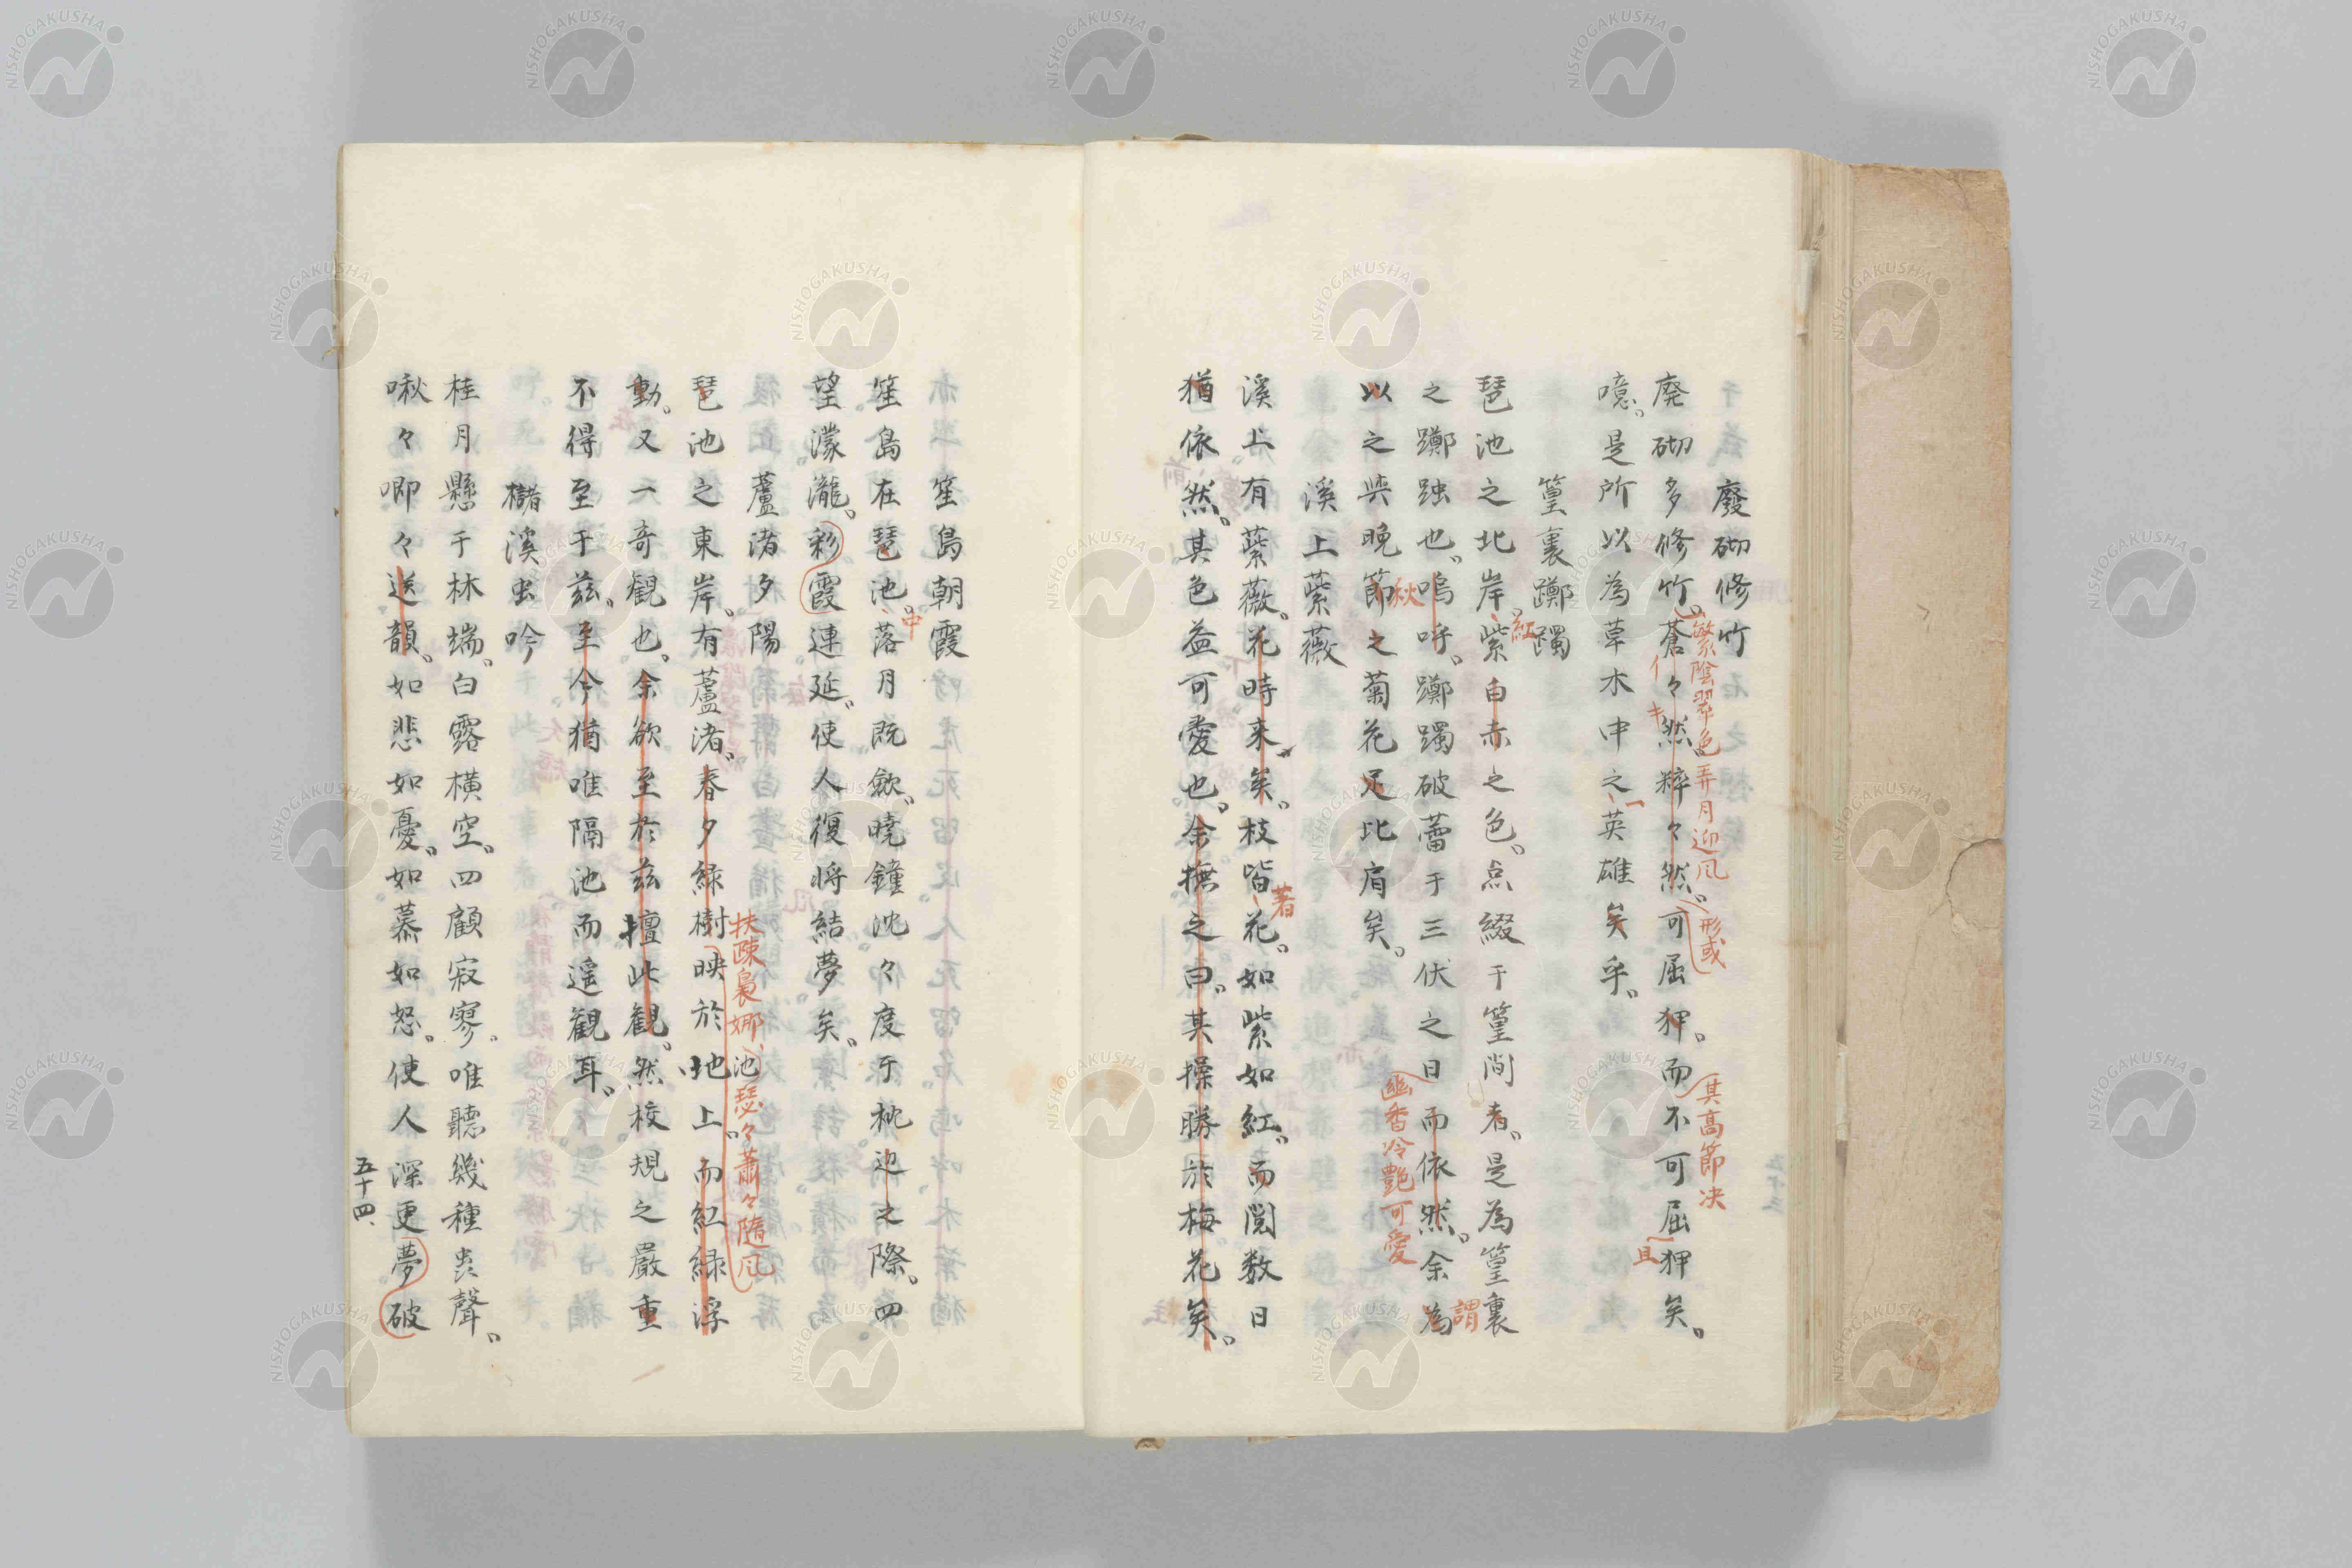 廢砌修竹
廃砌多修竹。蒼々然、粹々然。可屈狎。而不可屈狎矣。
繁陰翠色弄月迎凨
形或
其高節决
且
噫。是所以為草木中之英雄矣乎。
一
篁裏躑躅
琶池之北岸。紫白赤之色。点綴于篁間者。是為篁裏
紅
之躑躅也。嗚呼。躑躅破蕾于三伏之日而依然。余為
秋
幽香冷艶可愛
謂
以之與晚節之菊花足比肩矣。
溪上紫薇
溪上有紫薇。花時来矣。枝皆花。如紫如紅。而閲数日
著
猶依然。其色益可愛也。余撫之曰。其操勝於梅花矣。
笙島朝霞
笙島在琶池。落月既歛。曉鐘沈々度于枕边之際。四
中
望濛瀧。彩霞連延。使人復将結夢矣。
蘆渚夕陽
琶池之東岸。有蘆渚。春夕緑樹映於地上。而紅緑浮
扶疎裊娜、池瑟々蕭々隨凨
動。又一奇観也。余欲至於茲擅此観。然校規之嚴重
不得至于茲。至今猶唯隔池而遥觀耳。
櫧溪虫吟
桂月懸于林端。白露横空。四顧寂寥。唯聽幾種虫聲。
啾々喞々送韻。如悲如憂。如慕如怒。使人深更夢破
五十四、
NISHOGAKUSHA